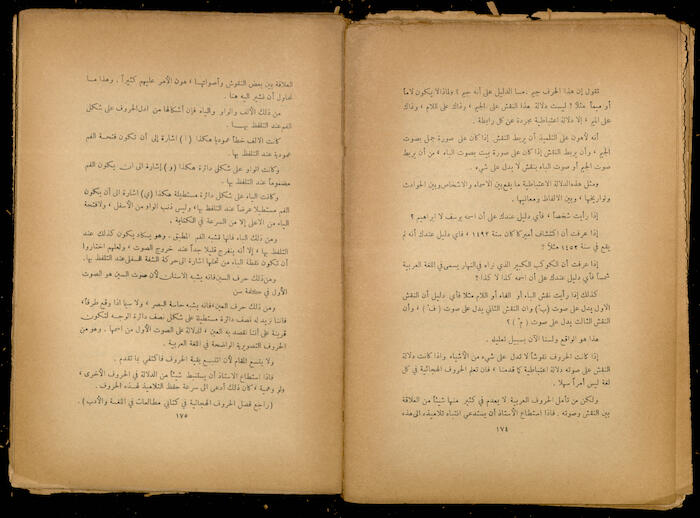 تقول إن هذا الحرف جيم . مما الدليل على أنه جيم ؟ ولماذا لا يكون لاماً
أو ميماً مثلاً ! ليست دلالة هذا النقش على الجيم ، وذاك على اللام ، وذاك
على الميم ، إلا دلالة اعتباطية مجردة عن كل رابطة .
انه لأهون على التلميذ أن يربط النقش إذا كان على صورة جمل بصوت
الجيم ، وأن يربط النقش إذا كان على صورة بيت بصوت الباء ، من أن يربط
صوت الجيم أو صوت الباء بنقش لا يدل على شيء .
ومثل هذه الدلالة الاعتباطية ما يقع بين الاسماء والاشخاص وبين الحوادث
وتواريخها ، وبين الالفاظ ومعانيها .
إذا رأيت شخصاً ، فأي دليل عندك على أن اسمه يوسف لا ابراهيم ؟
إذا عرفت أن اكتشاف أميركا كان سنة ١٤٩٢ ، فأي دليل عندك أنه لم
يقع في سنة ١٤٥٣ مثلاً ؟
إذا عرفت أن الكوكب الكبير الذي نراه في النهار يسمى في اللغة العربية
شمساً فأي دليل عندك على أن اسمه كذا لا كذا ؟
كذلك إذا رأيت نقش الباء أو الفاء أو اللام مثلا فأي دليل أن النقش
الاول يدل على صوت (ب) وان النقش الثاني يدل على صوت (ف) ، وأن
النقش الثالث يدل على صوت (م) ؟
هذا هو الواقع ولسنا الآن بسبيل تعليله .
إذا كانت الحروف نقوشاً لا تدل على شيء من الأشياء واذا كانت دلالة
النقش على صوته دلالة اعتباطية كما قدمنا ، فان تعلم الحروف الهجائية في كل
لغة ليس أمراً سهلا .
ولكن من تأمل الحروف العربية لا يعدم في كثير منها شيئاً من العلاقة
بين النقش وصوته . فاذا استطاع الأستاذ أن يستدعي انتباه تلاميذه الى هذه
١٧٤
العلاقة بين بعض النقوش وأصواتها ، هون الأمر عليهم كثيراً . وهذا ما
نحاول أن نشير اليه هنا .
من ذلك الألف والواو والياء فإن أشكالها من ادل الحروف على شكل
الفم عند التلفظ بها .
كانت الالف خطاً عمودياً هكذا ( أ ) اشارة إلى أن تكون فتحة الفم
عمودية عند التلفظ بها .
وكانت الواو على شكل دائرة هكذا ( و ) إشارة الى ان يكون الفم
مضموماً عند التلفظ بها .
وكانت الياء على شكل دائرة مستطيلة هكذا (ي) اشارة الى أن يكون
الفم مستطيلا عرضاً عند التلفظ بها ، وليس ذنب الواو من الأسفل ، ولا فتحة
الياء من الاعلى إلا من السرعة في الكتابة .
ومن ذلك الباء فانها تشبه الفم المطبق . وهو يكاد يكون كذلك عند
التلفظ بها ، إلا أنه ينفرج قليلا جداً عند خروج الصوت ، ولعلهم اختاروا
أن تكون نقطة الباء من تحتها اشارة الى حركة الشفة السفلى عند التلفظ بها.
ومن ذلك حرف السين فانه يشبه الاسنان لأن صوت السين هو الصوت
الأول في كلمة سن
ومن ذلك حرف العين ، فانه يشبه حاسة البصر ، ولا سيما اذا وقع طرفاً ،
فاننا نزيد له نصف دائرة مستطيلة على شكل نصف دائرة الوجه لتكون
قرينة على أننا نقصد به العين ، للدلالة على الصوت الأول من اسمها . وهو من
الحروف التصويرية الواضحة في اللغة العربية .
ولا يتسع المقام لأن نتتبع بقية الحروف فاكتفي بما تقدم .
فاذا استطاع الاستاذ أن يستنبط شيئاً من العلاقة في الحروف الأخرى ،
ولو وهمية ، كان ذلك أدعى الى سرعة حفظ التلاميذ لهذه الحروف .
(راجع فصل الحروف الهجائية في كتابي مطالعات في اللغة والأدب) .
١٧٥